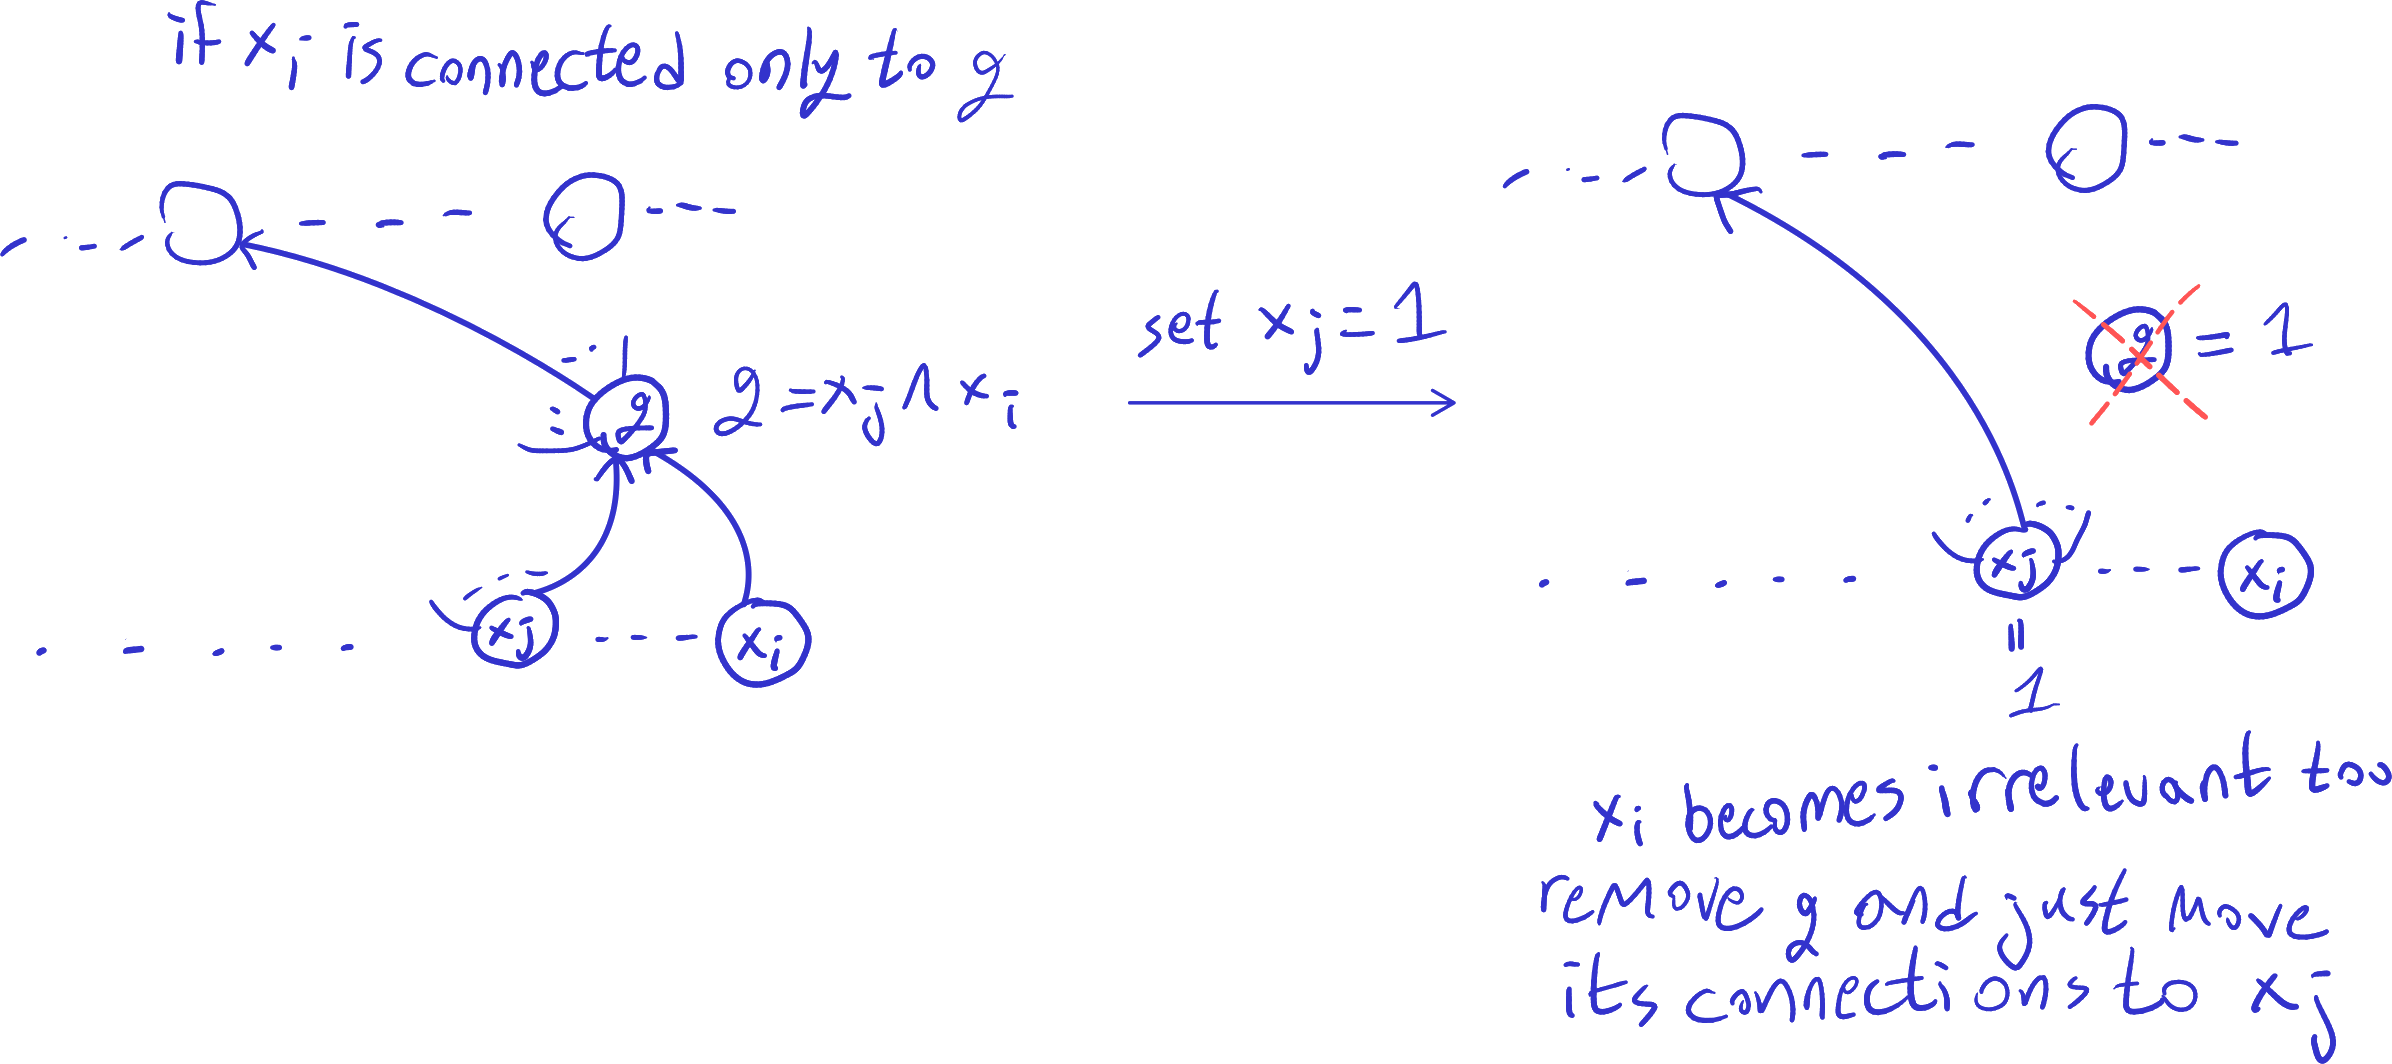 if xj is connected only to g
g = xj ∧ xi
set xj = 1
g = 1
g
xj
xi
xj
xi
=
1
xi becomes irrelevant too
remove g and just move
its connections to xj